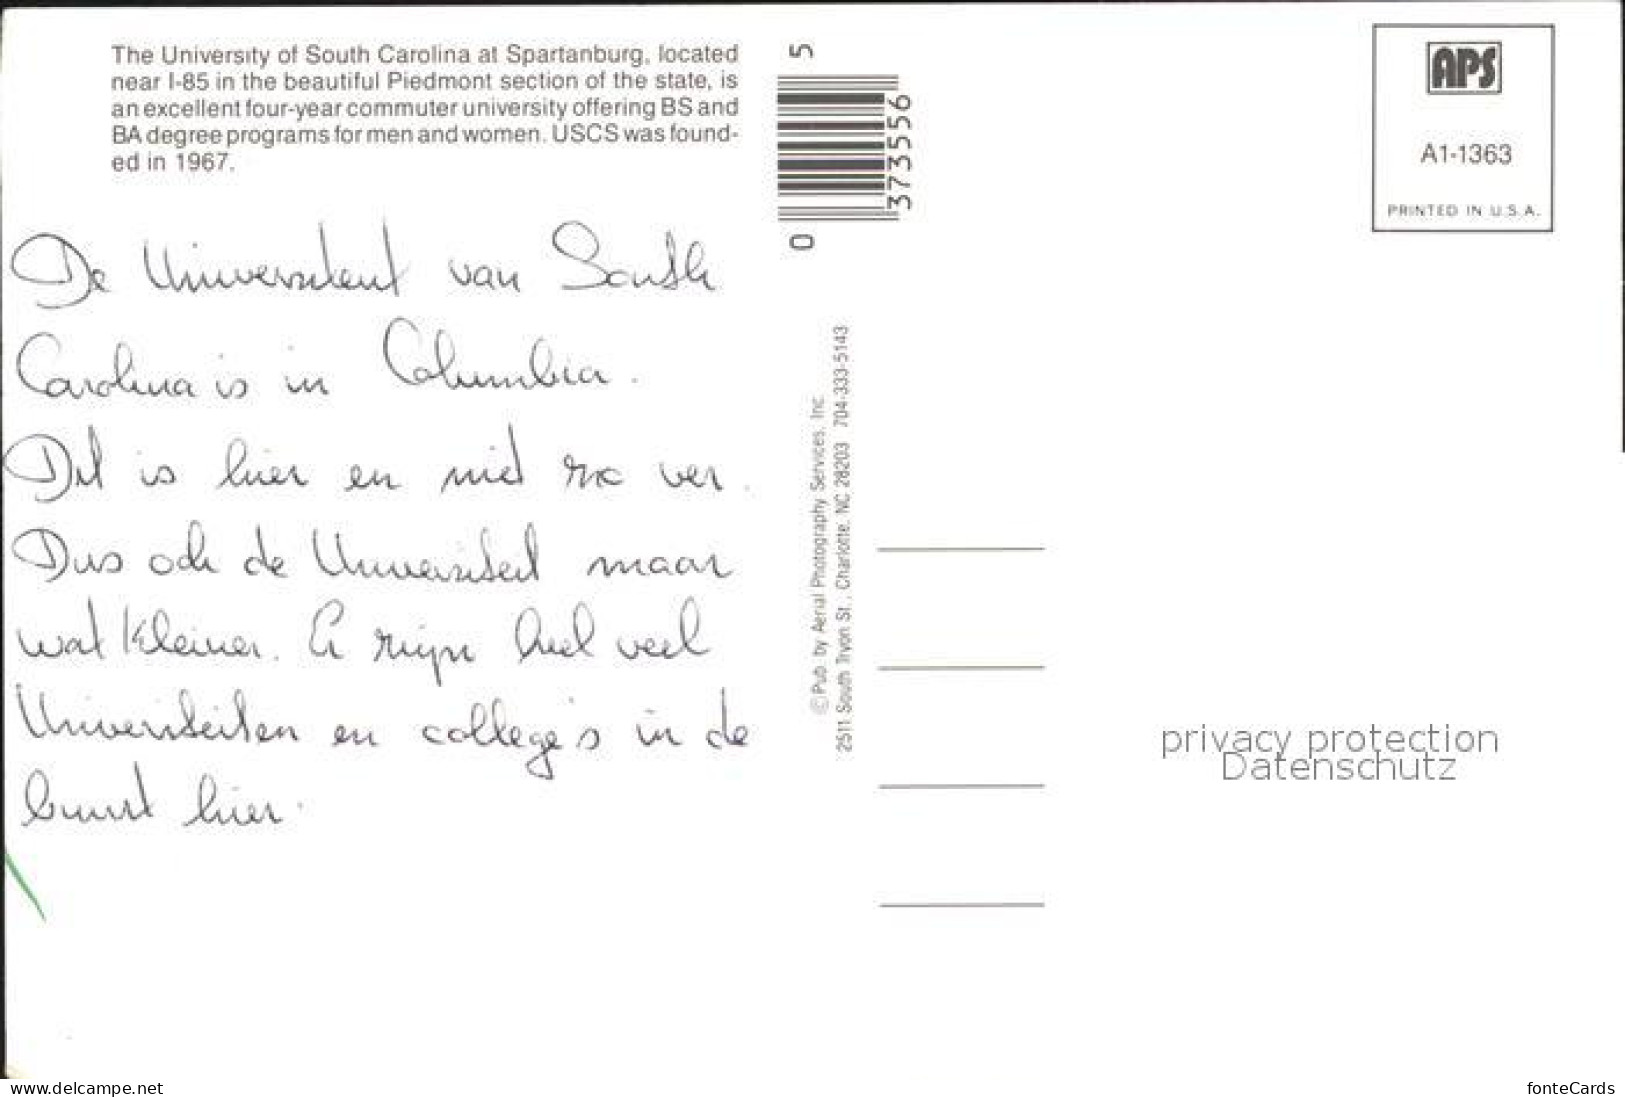 The University of South Carolina at Spartanburg, located
near I-85 in the beautiful Piedmont section of the state, is
an excellent four-year commuter university offering BS and
BA degree programs for men and women. USCS was found-
ed in 1967.
De Universiteit van South
Carolina is in Columbia.
Dit is hier en niet zo ver.
Dus ook de Universiteit maar
wat kleiner. Er zijn heel veel
Universiteiten en college's in de
buurt hier.
0 373556 5
© Pub. by Aerial Photography Services, Inc.
2511 South Tryon St., Charlotte, NC 28203 704-333-5143
APS
A1-1363
PRINTED IN U.S.A.
privacy protection
Datenschutz
www.delcampe.net
fonteCards